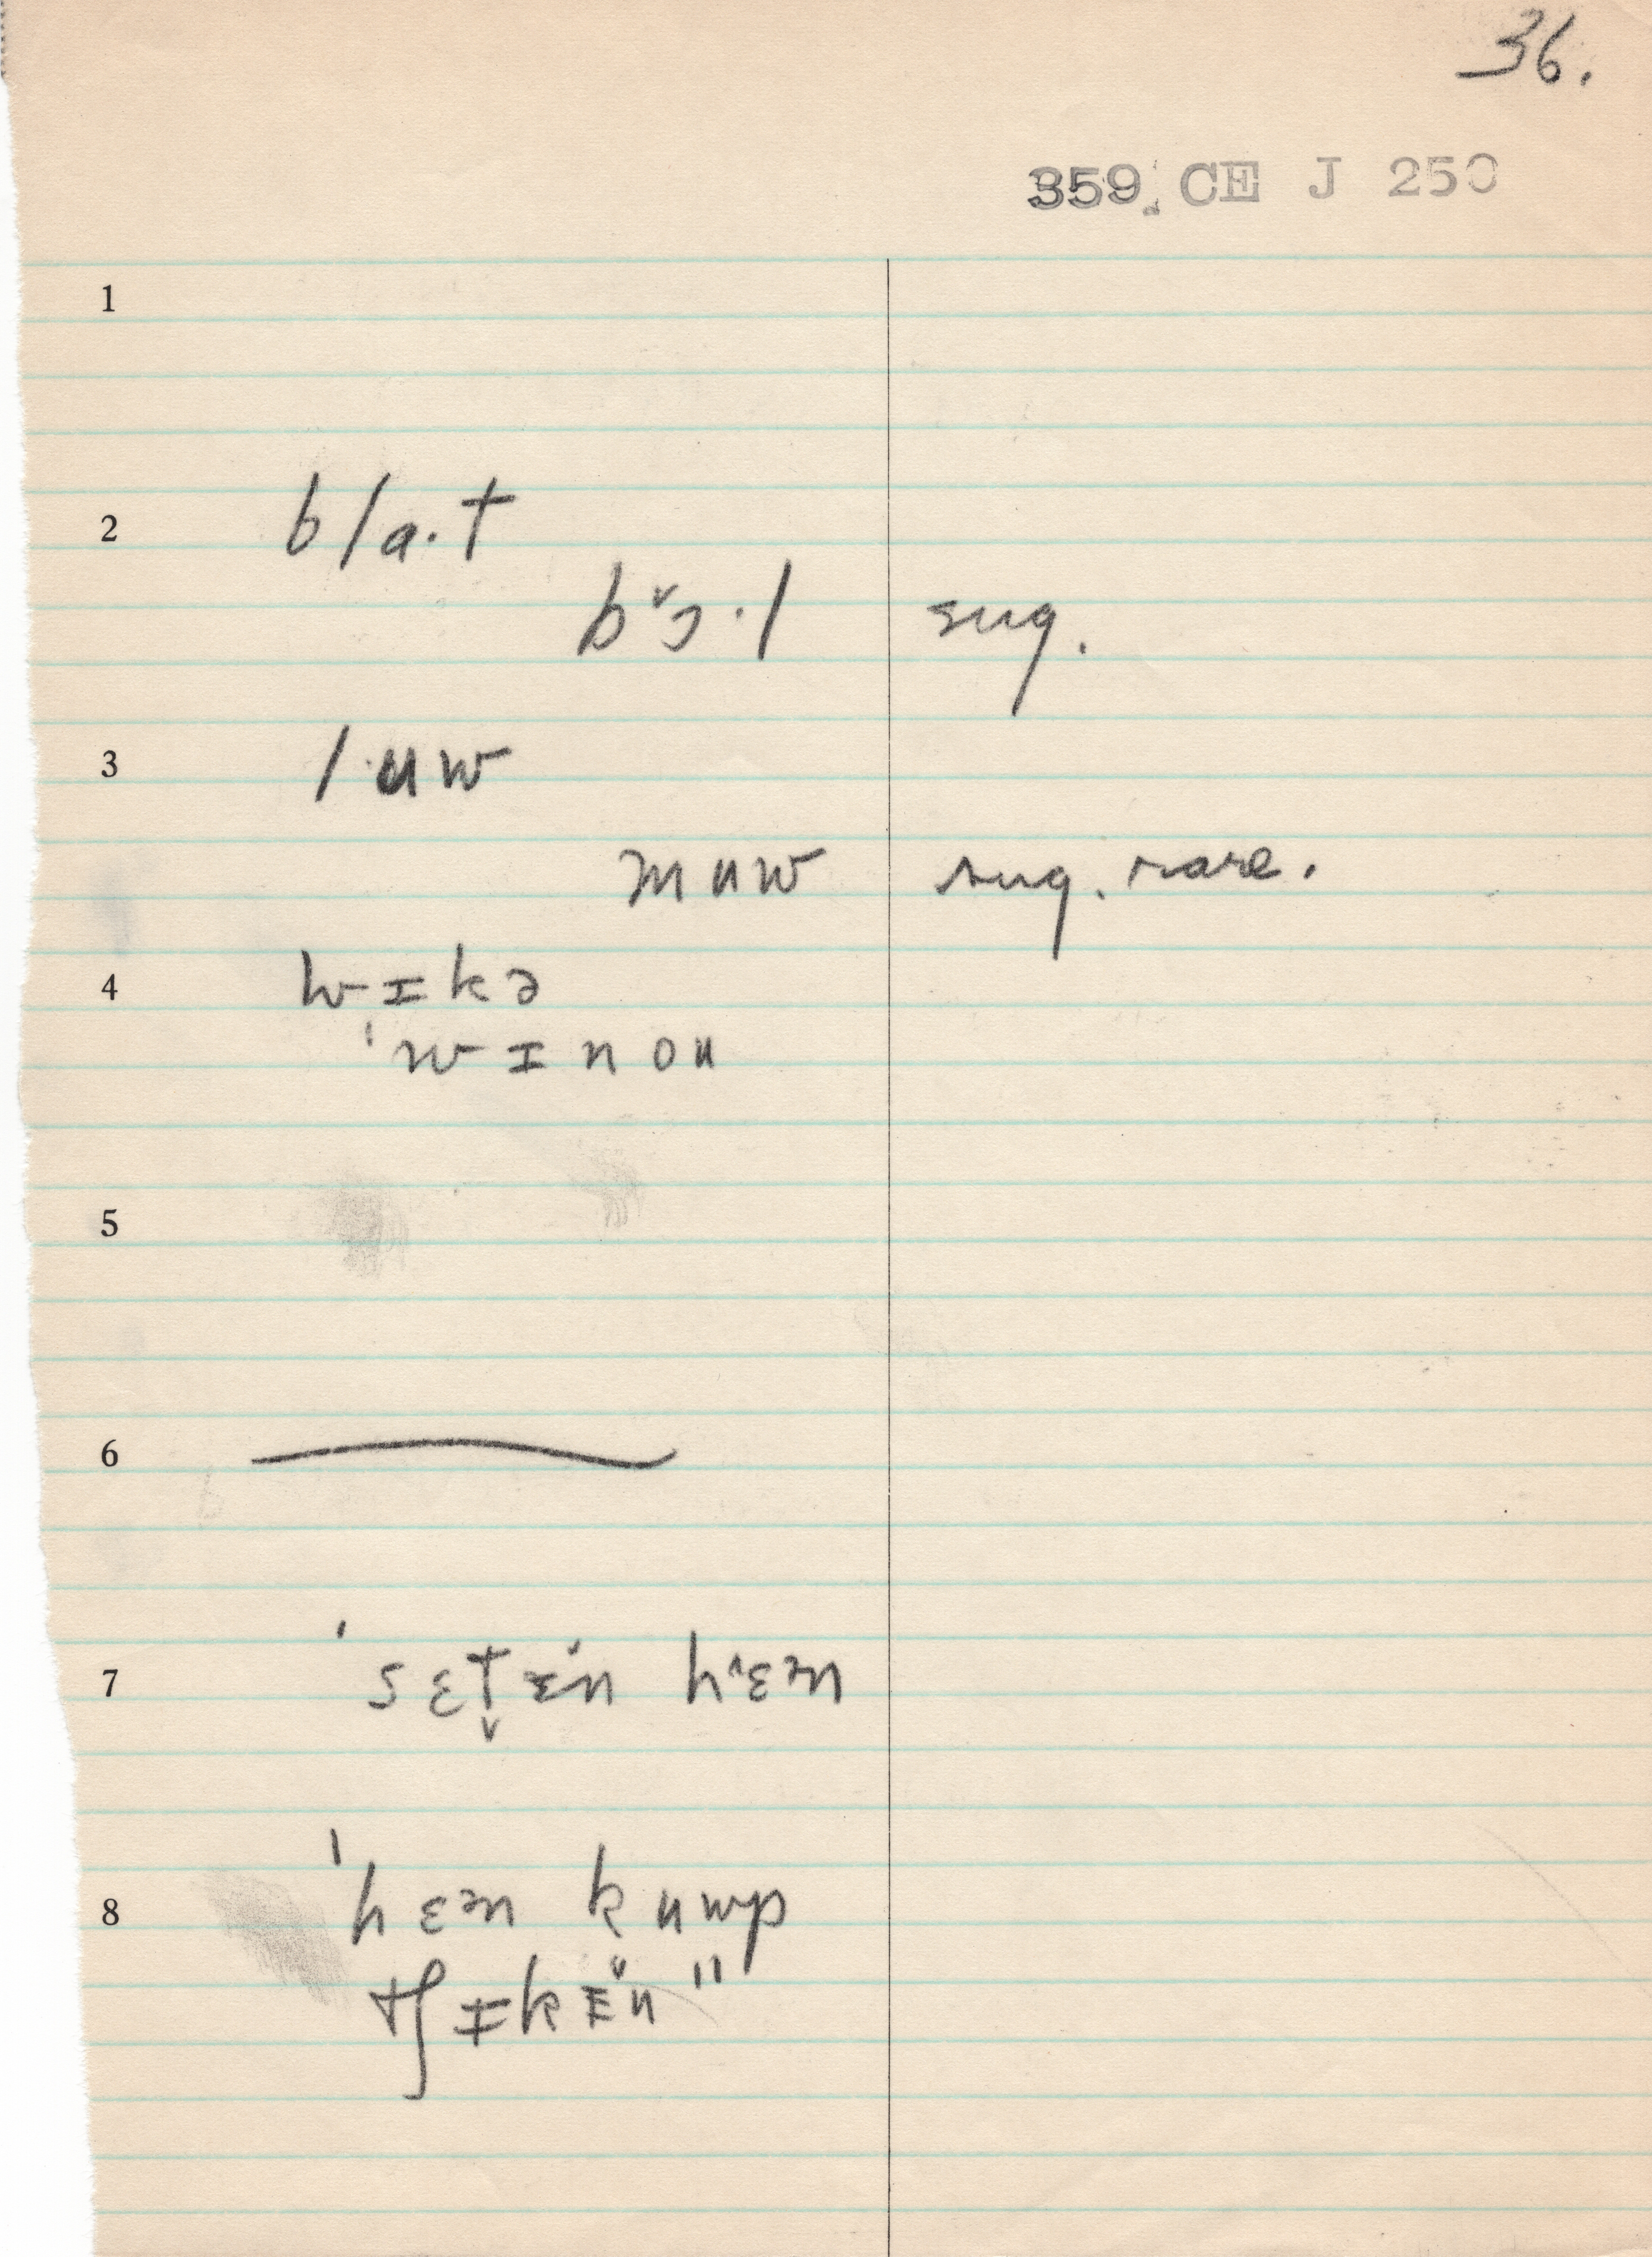 36.
359. CE J 250
1
2 bla·t
bɔ̌·l sug.
3 l·uw
muw sug. rare.
4 wɪkə
ˈwɪnou
5
6
7 ˈsɛt̬ɪ̆n hɛ̂m
8 ˈhɛm kump
tʃɪkɪ̆n"